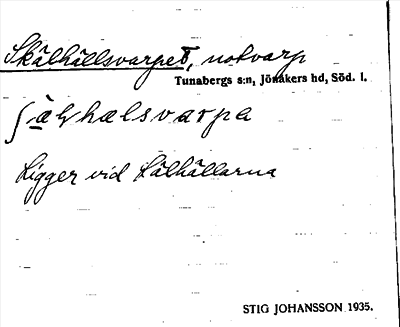 Skälhällsvarpet, notvarp
Tunabergs s:n, Jönåkers hd, Söd. l.
ʃä𝑙hælsvarpa
Ligger vid Kälhällarna
STIG JOHANSSON 1935.